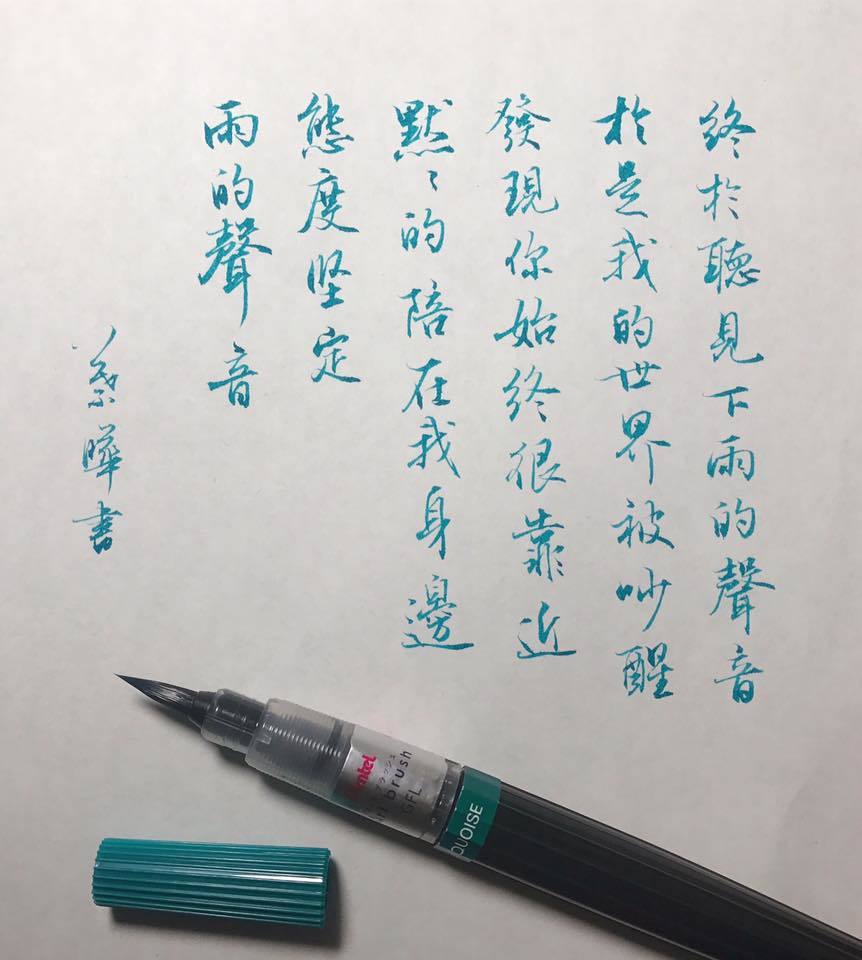 終於聽見下雨的聲音
於是我的世界被吵醒
發現你始終很靠近
默〻的陪在我身邊
態度堅定
雨的聲音
曄書
brush
GFL
QUOISE